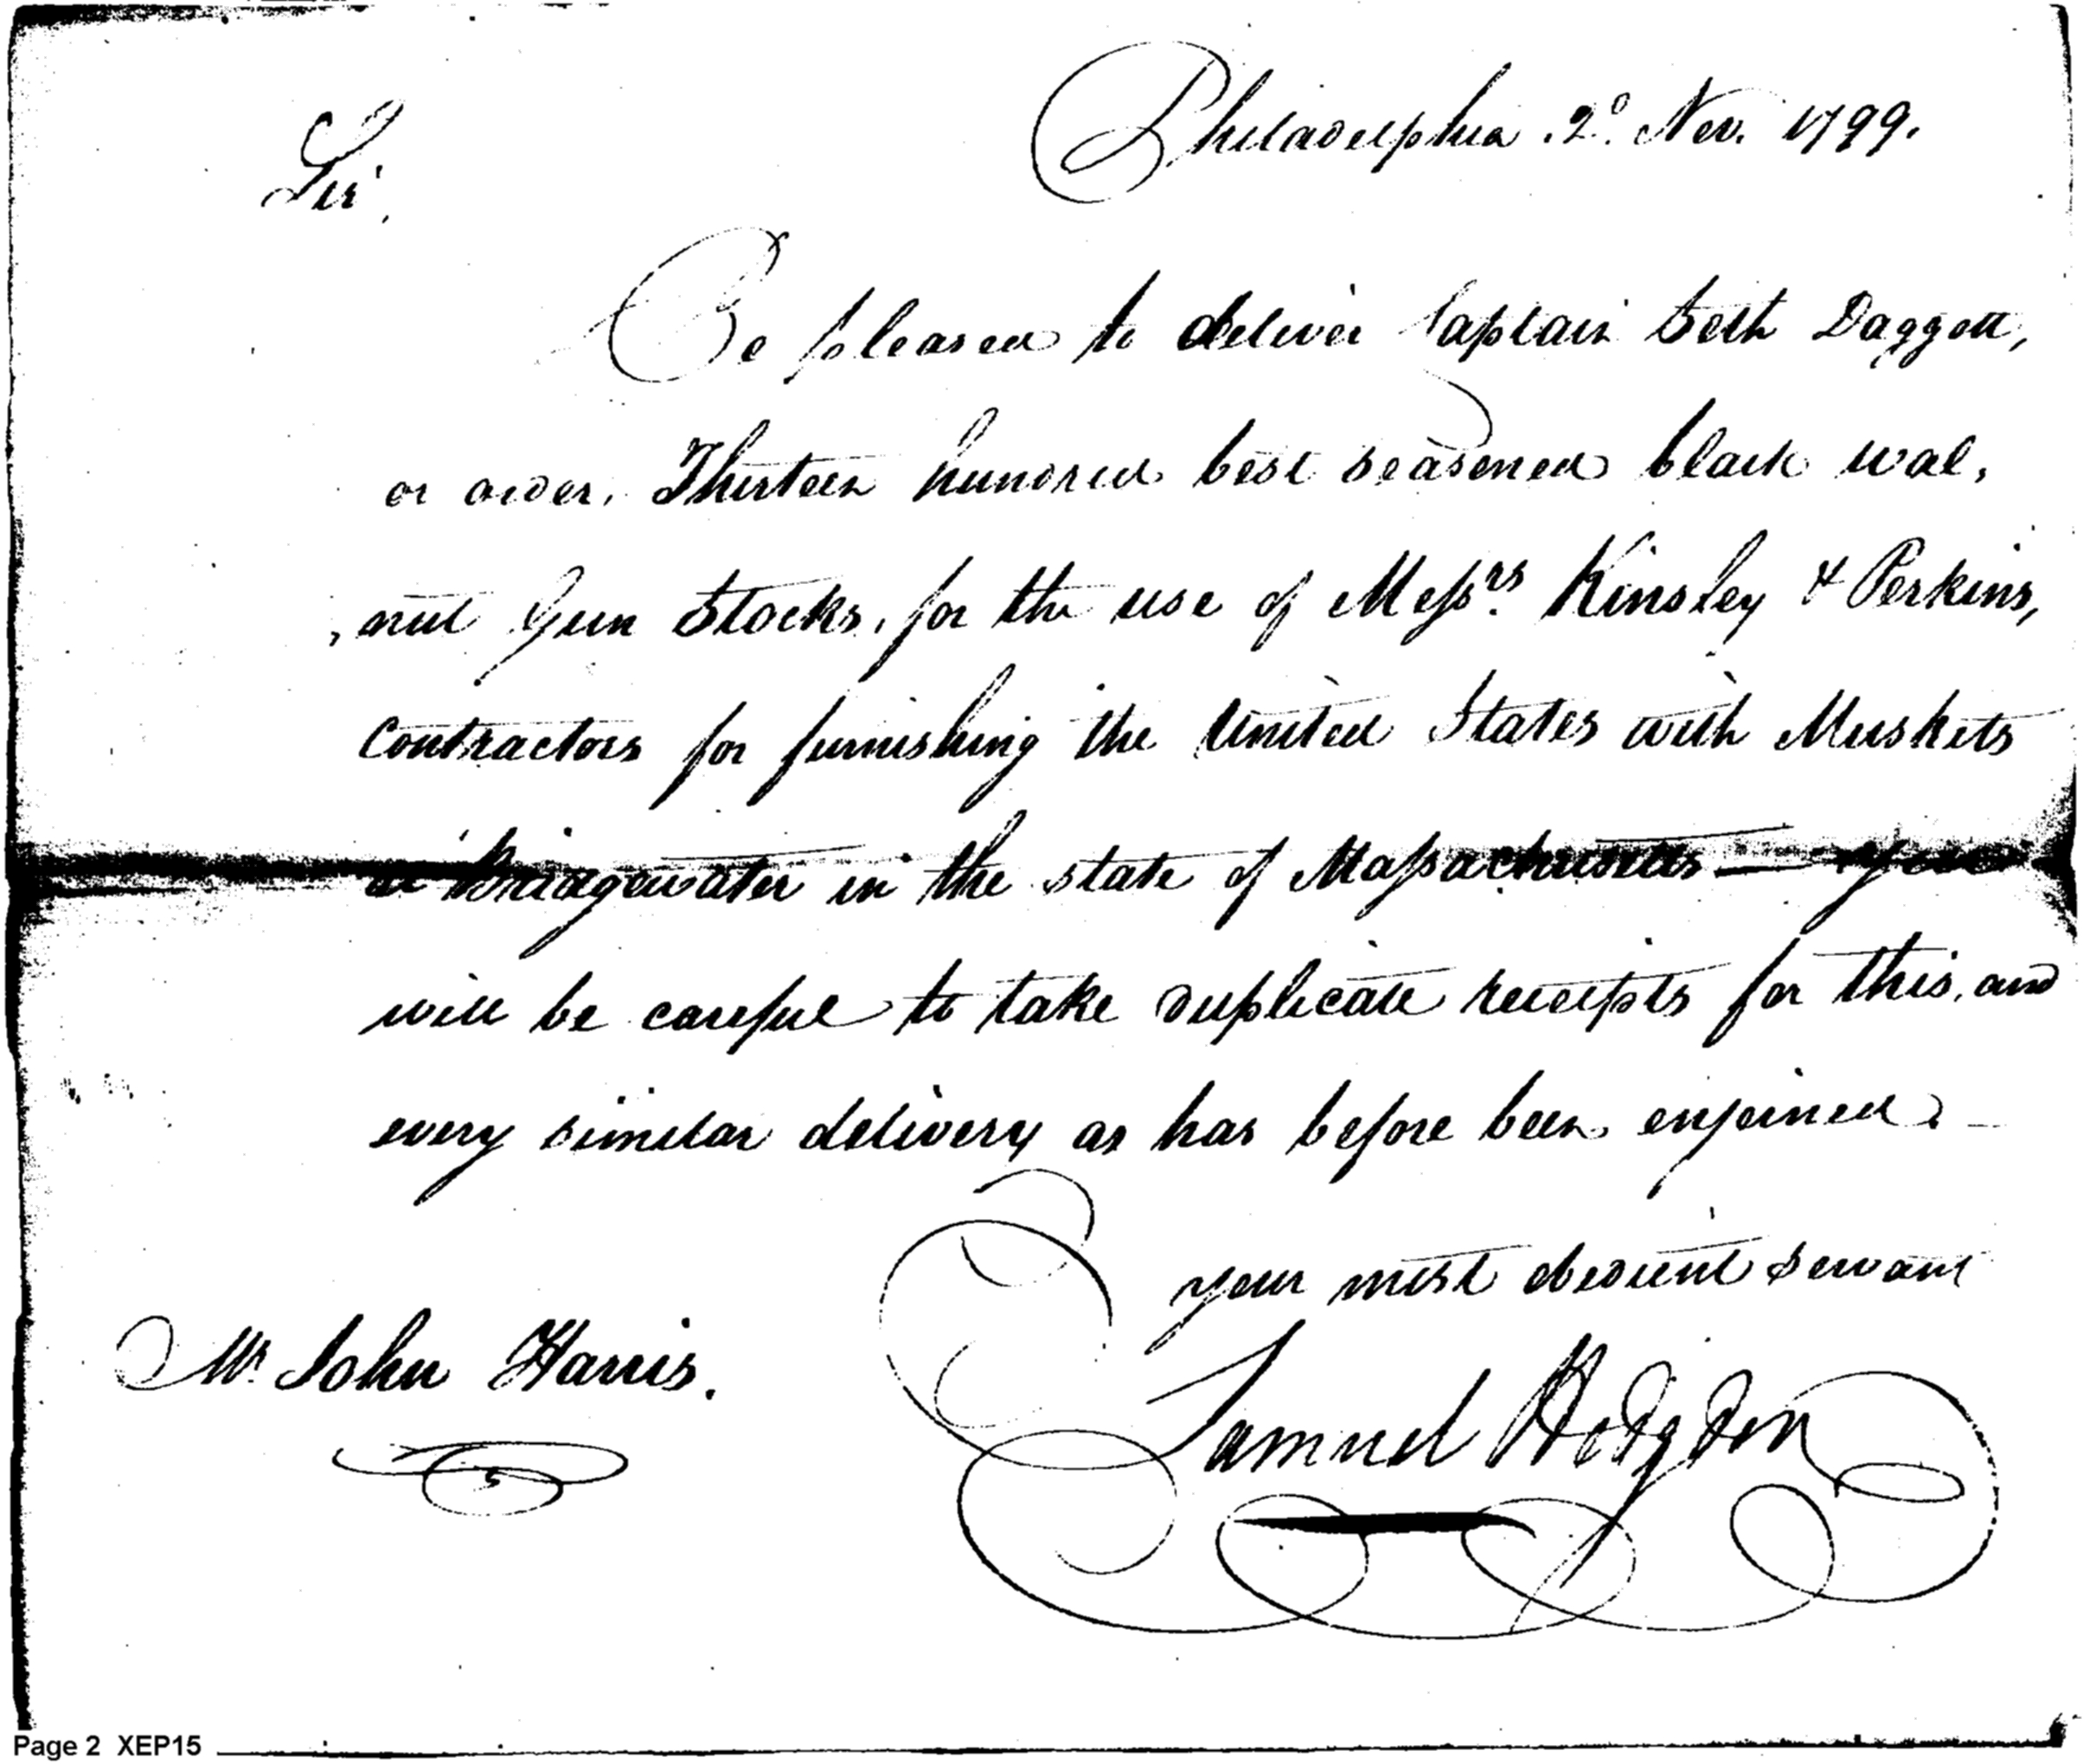 Philadelphia . 2º. Nov. 1799.
Sir,
Be pleased to deliver Captain Seth Daggett,
or order, Thirteen hundred best seasoned black wal,
,nut Gun Stocks, for the use of Messrs. Kinsley & Perkins,
Contractors for furnishing the United States with Muskets
at Bridgewater in the state of Massachusetts — you
will be careful to take duplicate receipts for this, and
every similar delivery as has before been enjoined. —
your most obedient servant
Mr. John Harris.
Samuel Hodgdon
Page 2 XEP15